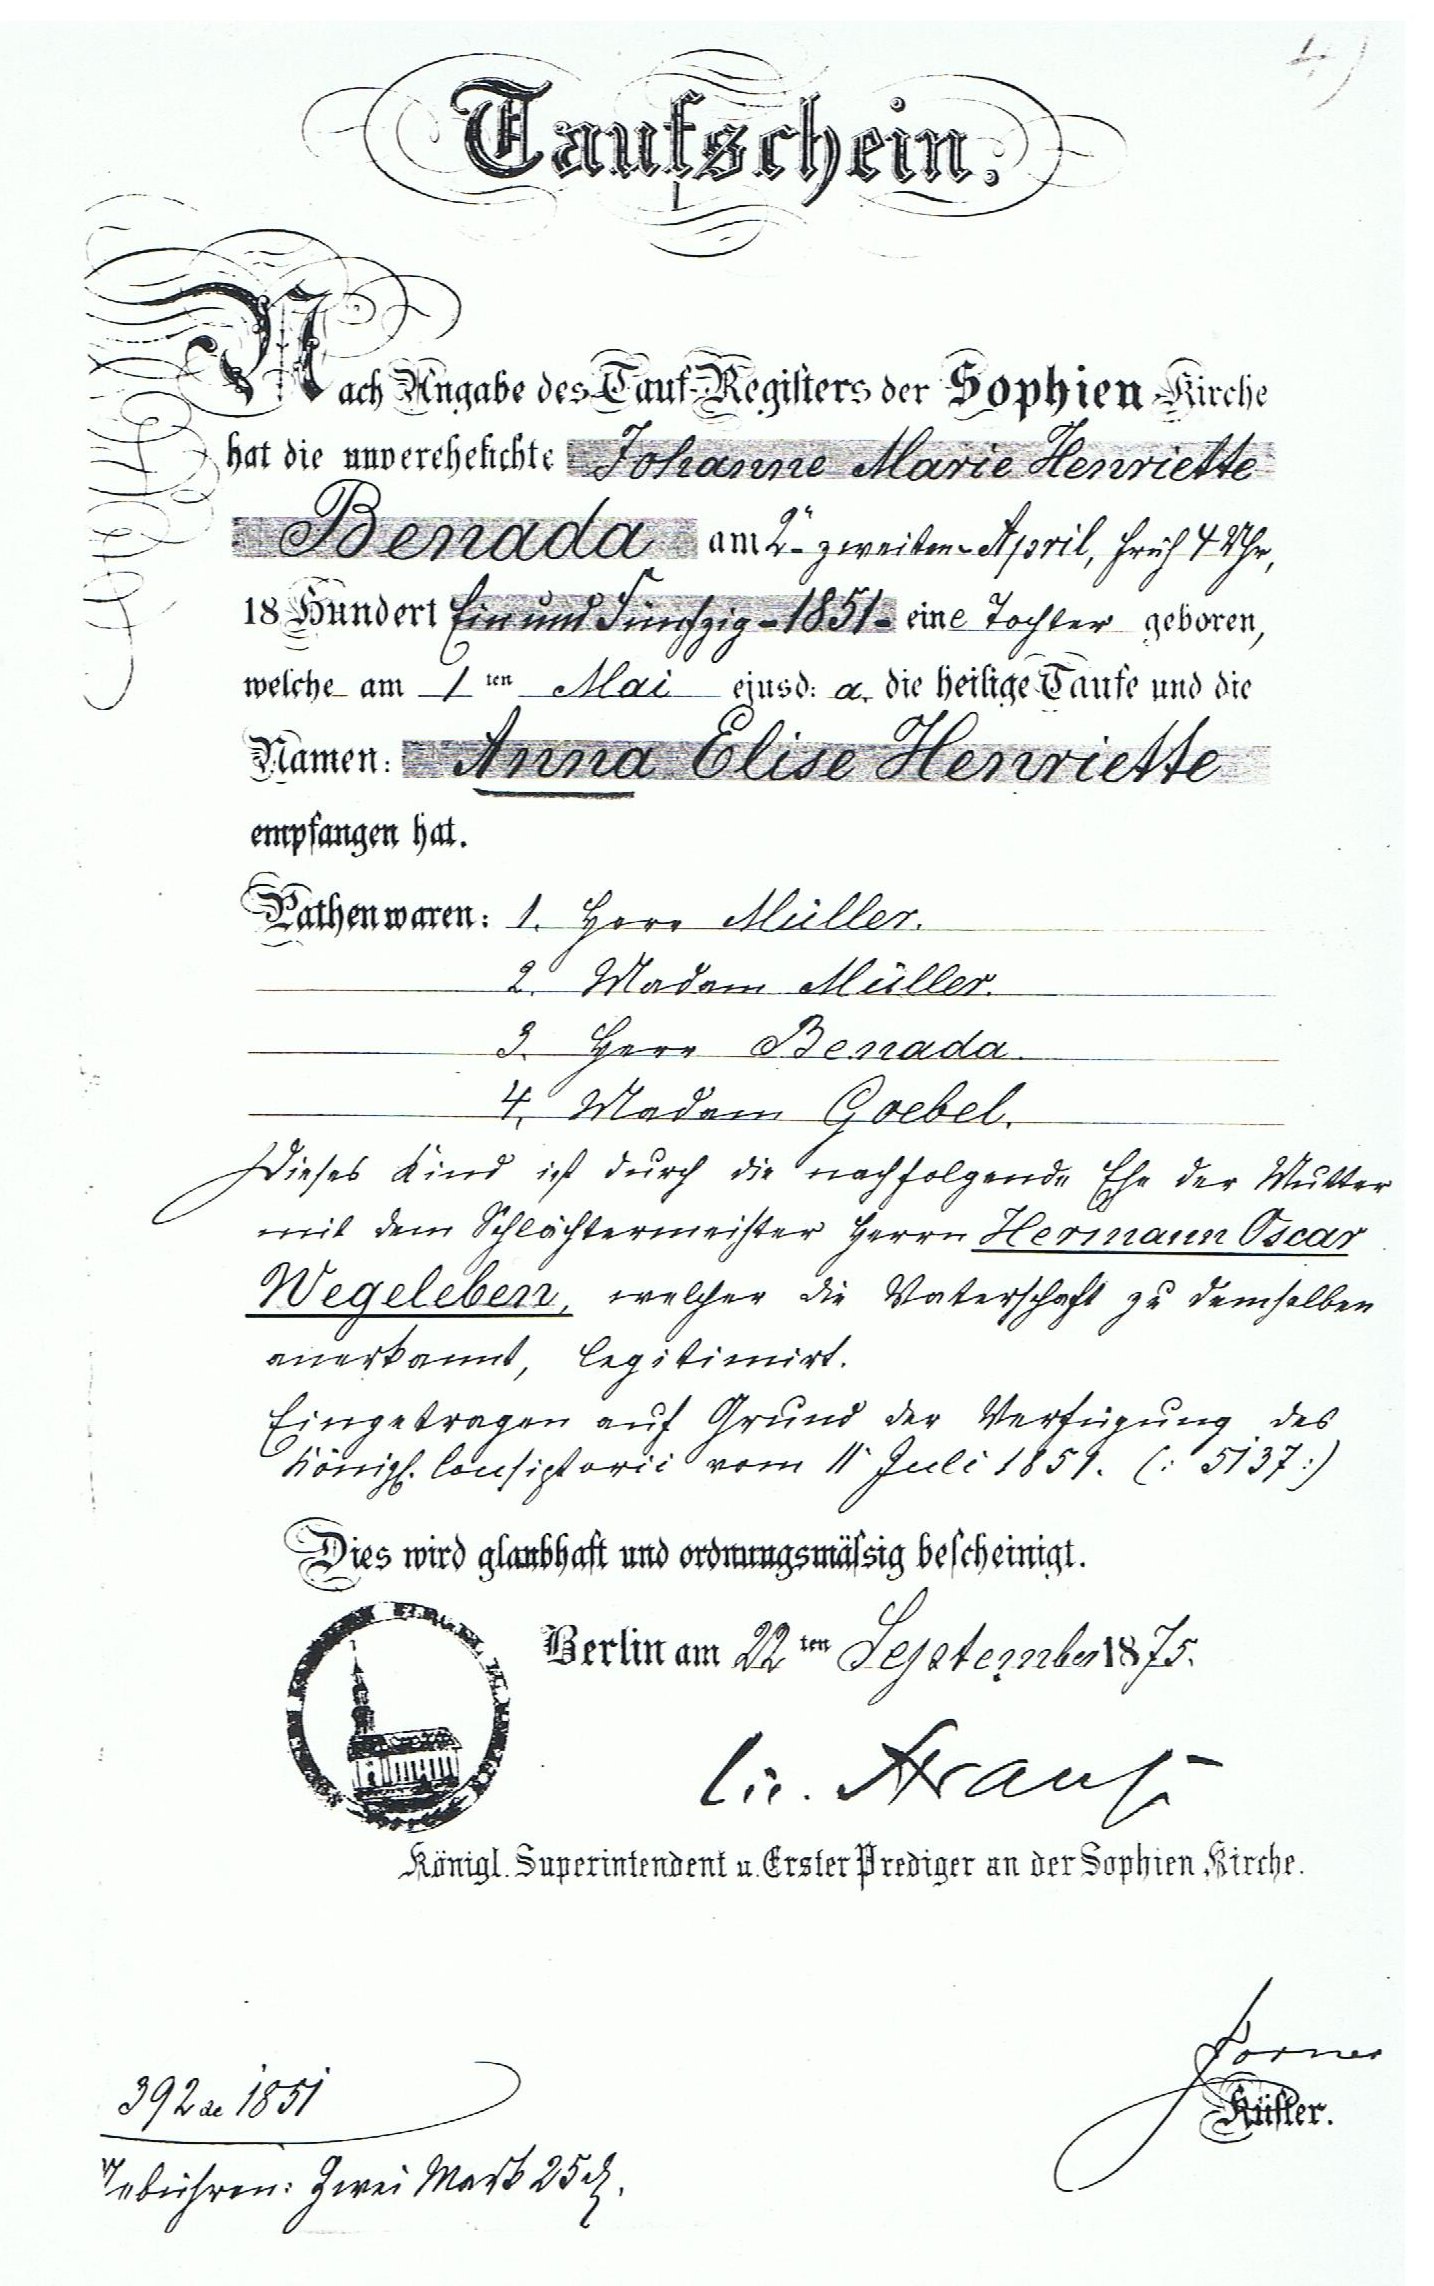 4)
Taufschein.
Nach Angabe des Tauf-Registers der Sophien-Kirche
hat die unverehelichte Johanne Marie Henriette
Benada am 2n zweiten April, früh 4 Uhr,
18 Hundert Ein und Fünfzig - 1851 - eine Tochter geboren,
welche am 1 ten Mai ejusd: a. die heilige Taufe und die
Namen: Anna Elise Henriette
empfangen hat.
Pathen waren: 1. Herr Müller.
2. Madam Müller.
3. Herr Benada.
4. Madam Goebel.
Dieses Kind ist durch die nachfolgende Ehe der Mutter
mit dem Schlächtermeister Herrn Hermann Oscar
Wegeleben, welcher die Vaterschaft zu demselben
anerkannt, legitimirt.
Eingetragen auf Grund der Verfügung des
Königl. Consistorii vom 11 Juli 1859. (: 5137 :)
Dies wird glaubhaft und ordnungsmässig bescheinigt.
Berlin am 22 ten September 1875.
Lic. Strauß
Königl. Superintendent u. Erster Prediger an der Sophien Kirche.
Küster.
392 de 1851
Gebühren: Zwei Mark 25 d.